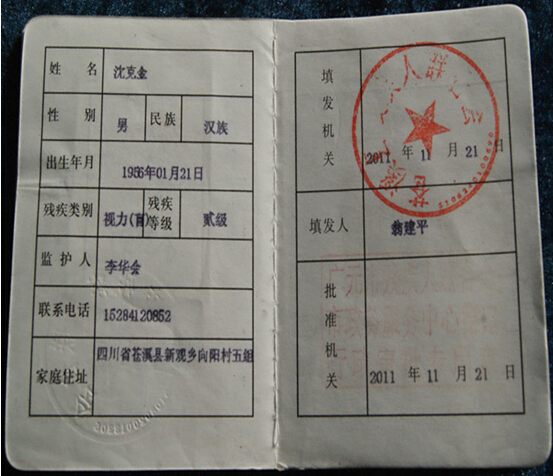 姓名 沈克金
性别 男 民族 汉族
出生年月 1956年01月21日
残疾类别 视力(盲) 残疾等级 贰级
监护人 李华会
联系电话 15284120852
家庭住址 四川省苍溪县新观乡向阳村五组
填发机关
2011 年 11 月 21 日
填发人 翁建平
批准机关
2011 年 11 月 21 日